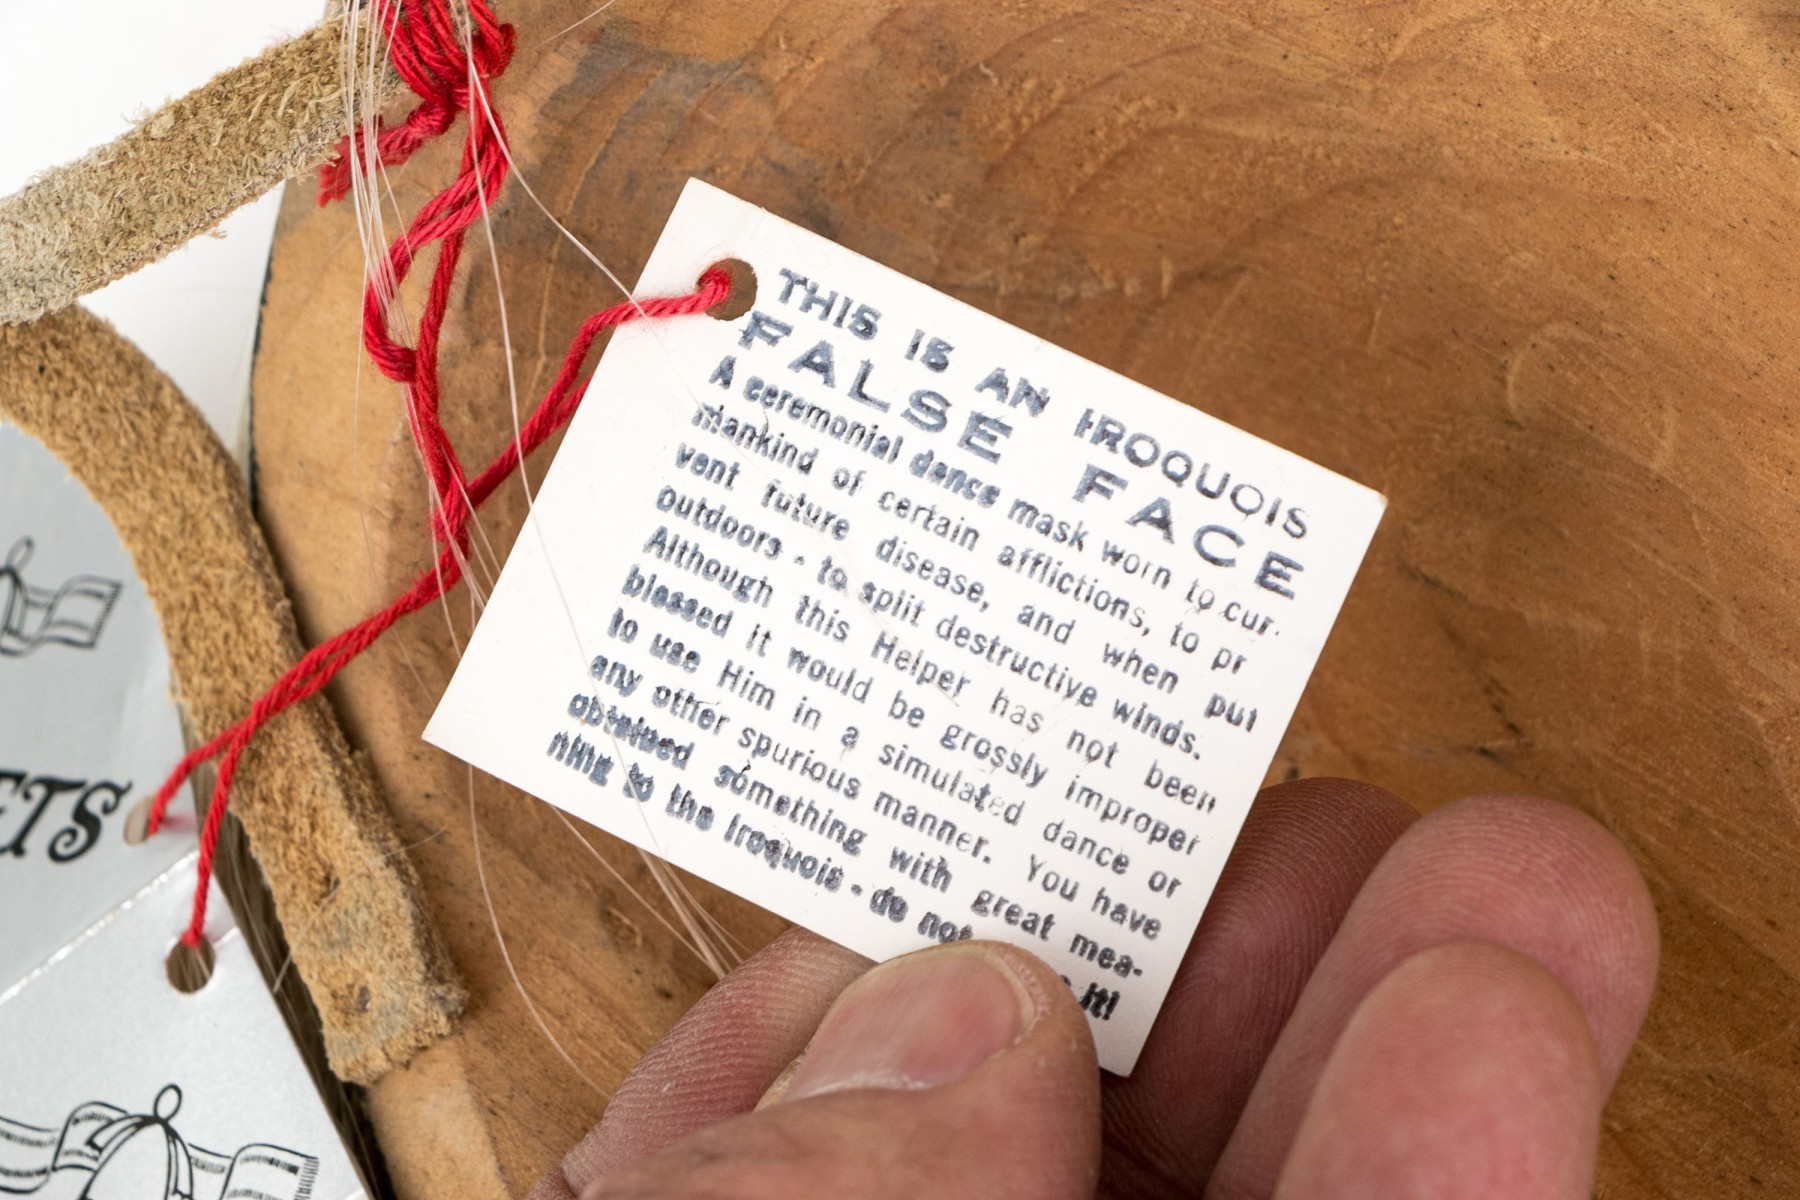 THIS IS AN IROQUOIS
FALSE FACE
A ceremonial dance mask worn to cur.
mankind of certain afflictions, to pr
vent future disease, and when put
outdoors - to split destructive winds.
Although this Helper has not been
blessed it would be grossly improper
to use Him in a simulated dance or
any other spurious manner. You have
obtained something with great mea-
ning to the Iroquois - do not it!
ETS